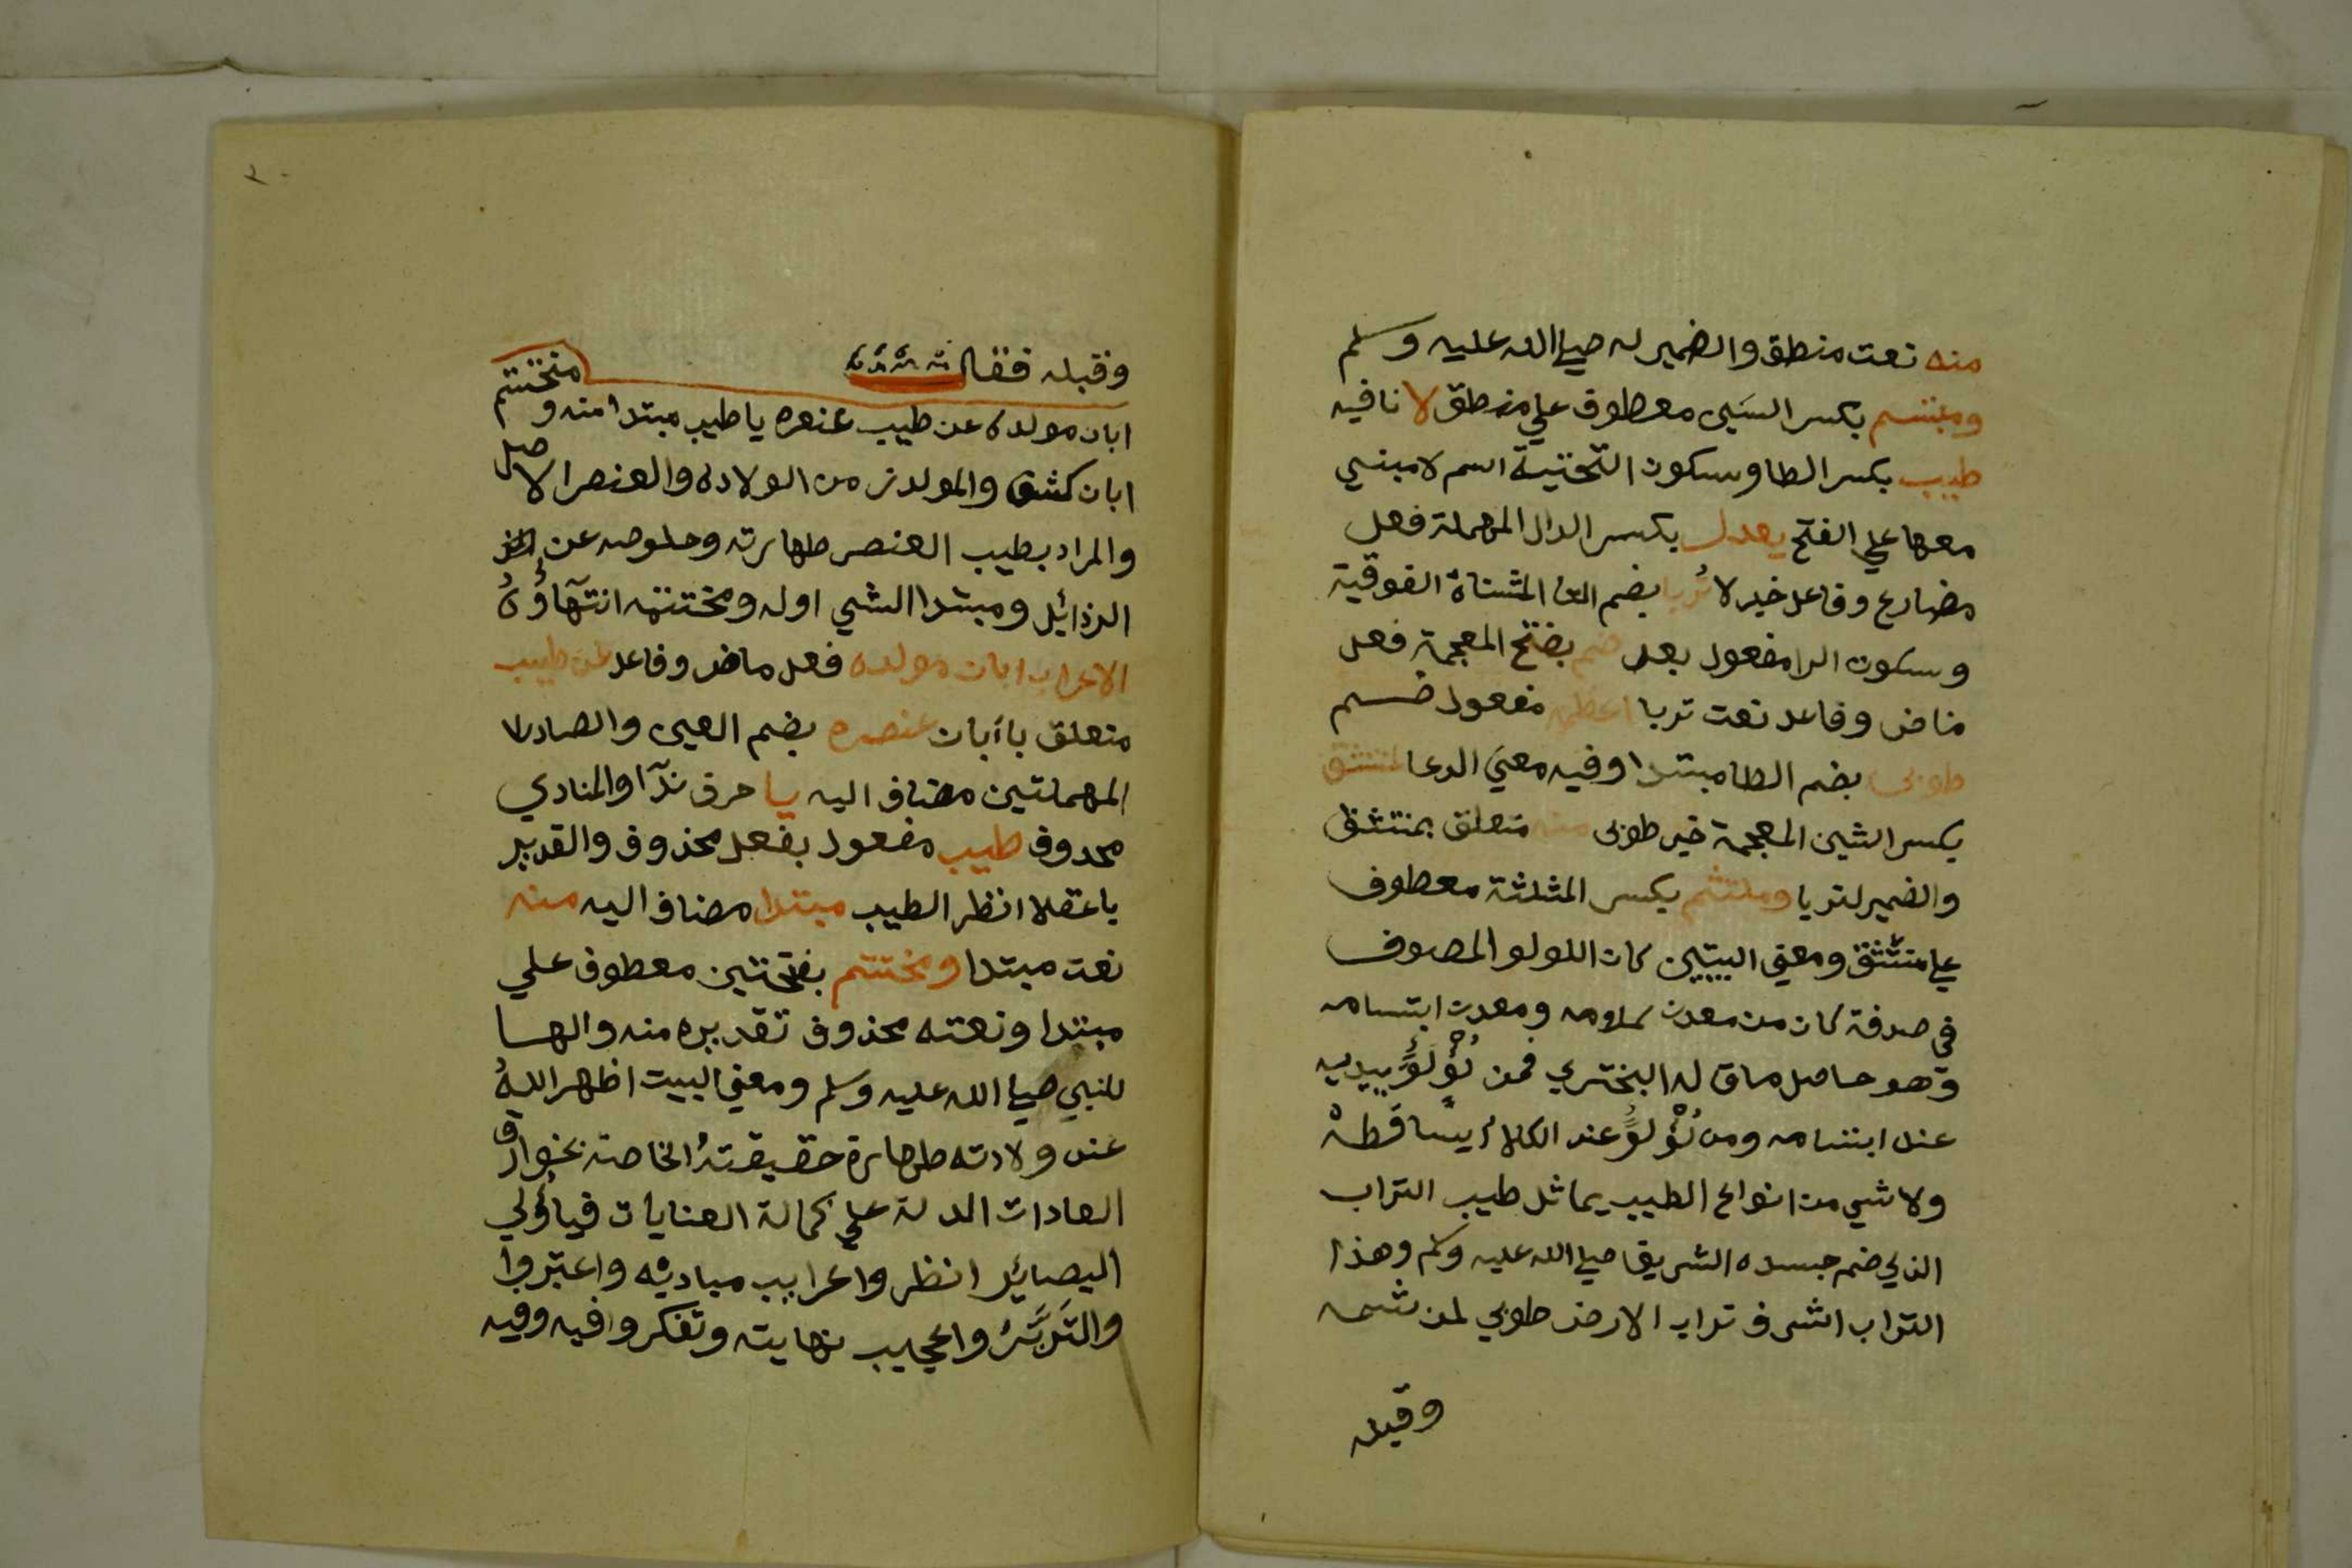 منه نعت منطق والضمير له صلي الله عليه وسلم
ومبتسم بكسر السين معطوف علي منطق لا نافيه
طيب بكسر الطا وسكون التحتية اسم لا مبني
معها علي الفتح يعدل بكسر الدال المهملة فعل
مضارع وفاعل خبر لا تُربا بضم التا المثناة الفوقية
وسكون الرا مفعول يعدل ضم بفتح المعجمة فعل
ماض وفاعل نعت تربا اعظمه مفعول ضم
طوبى بضم الطا مبتدا وفيه معنى الدعا لمنتشق
بكسر الشين المعجمة خبر طوبى منه متعلق بمنتشق
والضمير لتربا وملتثم بكسر المثلثة معطوف
علي منتشق ومعني البيتين كان اللولو المصوف
في صدفة كان من معدن كلامه ومعدن ابتسامه
وهو حاصل ما قاله البختري فمن لُؤْلُؤً يبديه
عند ابتسامه ومن لُؤْلُؤً عند الكلام يساقطه
ولا شي من انواع الطيب يماثل طيب التراب
الذي ضم جسده الشريف صلي الله عليه وسلم وهذا
التراب اشرف تراب الارض طوبي لمن شمه
وقبله
وقبله فقال
ابان مولده عن طيب عنصره يا طيب مبتدا منه ومختتم
ابان كشف والمولد من الولاده والعنصر الاصل
والمراد بطيب العنصر طهارته وخلوصه عن
الرذائل ومبتدا الشي اوله ومختتمه انتهآؤُهُ
الاعراب ابان مولده فعل ماض وفاعل عن طيب
متعلق بأبان عنصره بضم العين والصاد
المهملتين مضاف اليه يا حرف ندآ والمنادي
محدوف طيب مفعول بفعل محذوف والقدير
يا عقلا انظر الطيب مبتدا مضاف اليه منه
نعت مبتدا ومختتم بفتحتين معطوف علي
مبتدا ونعته محذوف تقديره منه والها
للنبي صلي الله عليه وسلم ومعني البيت اظهر اللهُ
عند ولادته طهارة حقيقتهُ الخاصة بخوارق
العادات الدلة علي كمالة العنايات فيا أولي
البصائر انظروا غرايب مباديه واعتبروا
واعجيب نهايته وتفكروا فيه وفيه